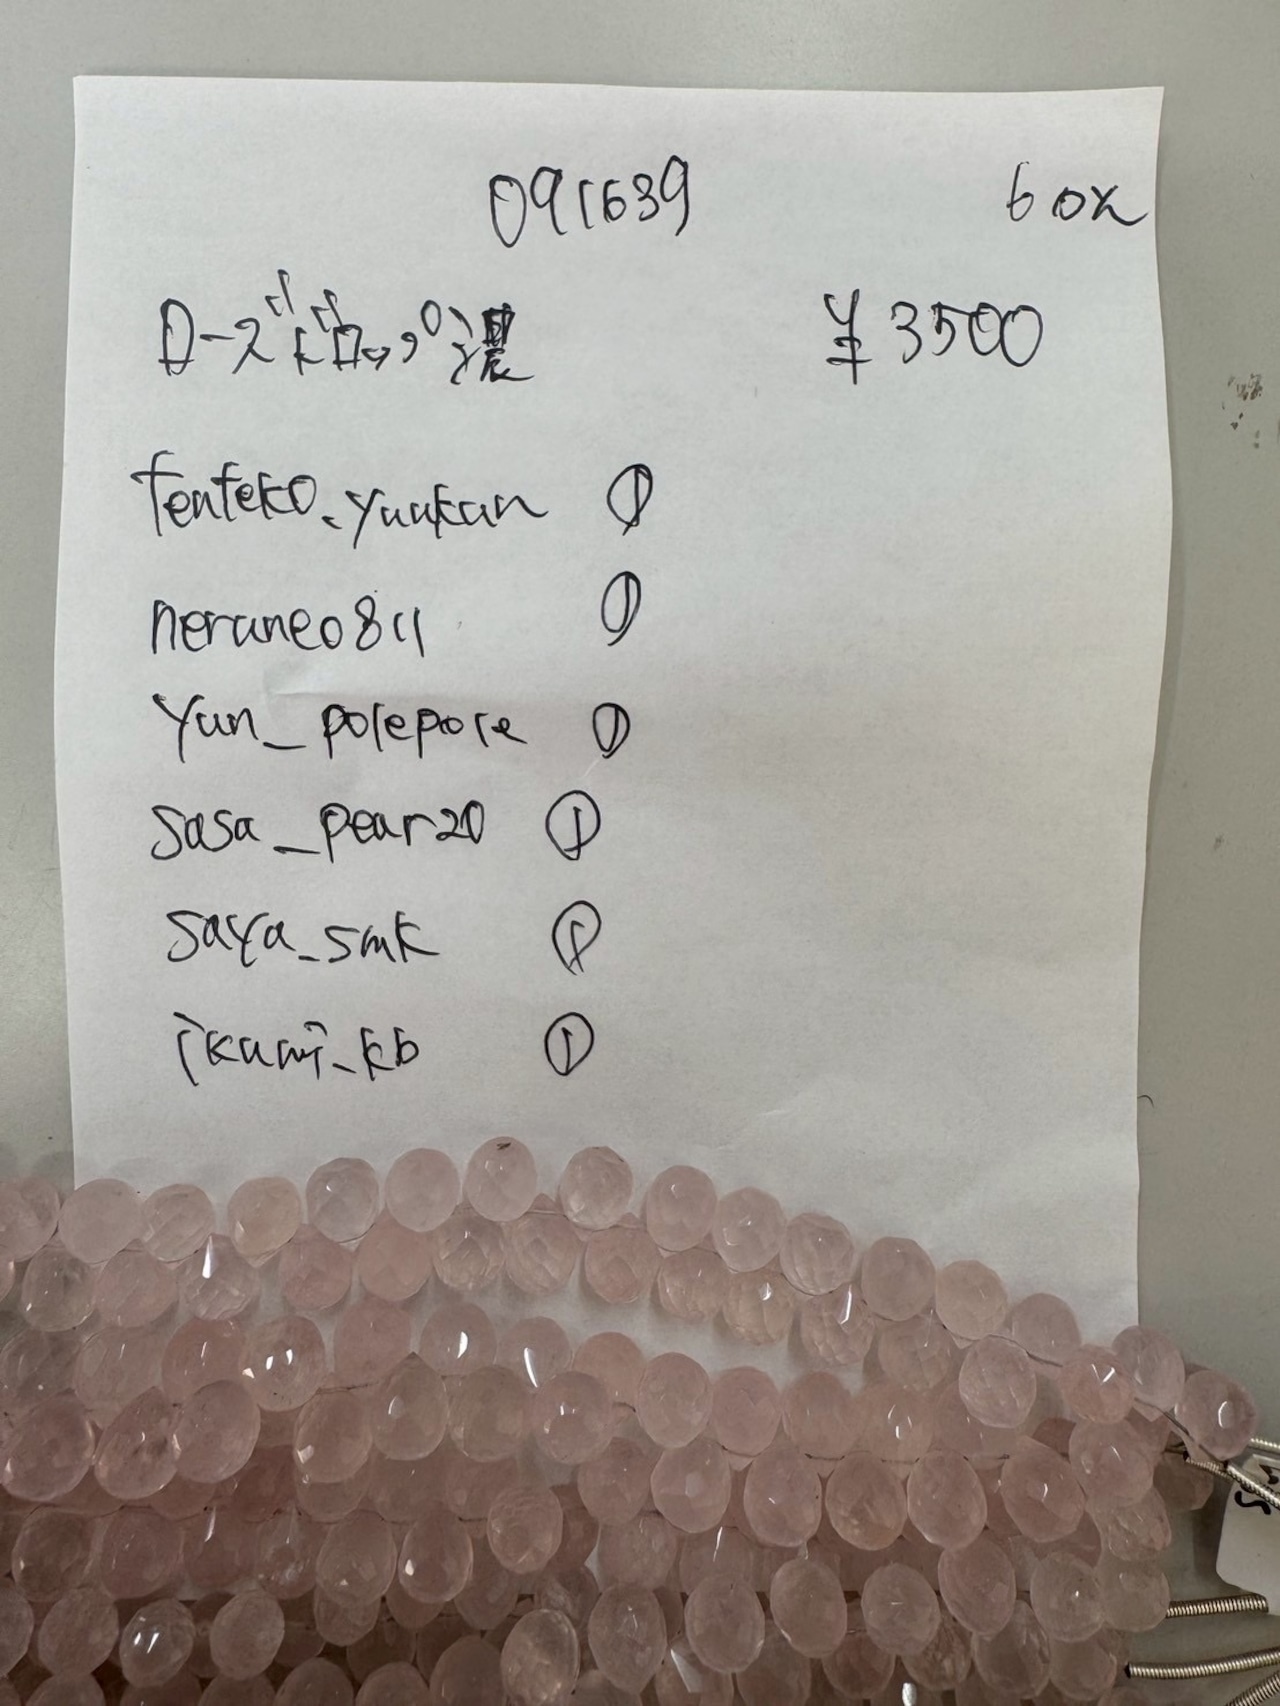 091639 6ox
ローズドロップ濃 ¥3500
tenteko.yuukun ①
neruneo811 ①
yun_polepole ①
sasa_pear20 ①
saya_smk ①
ikumi_kb ①